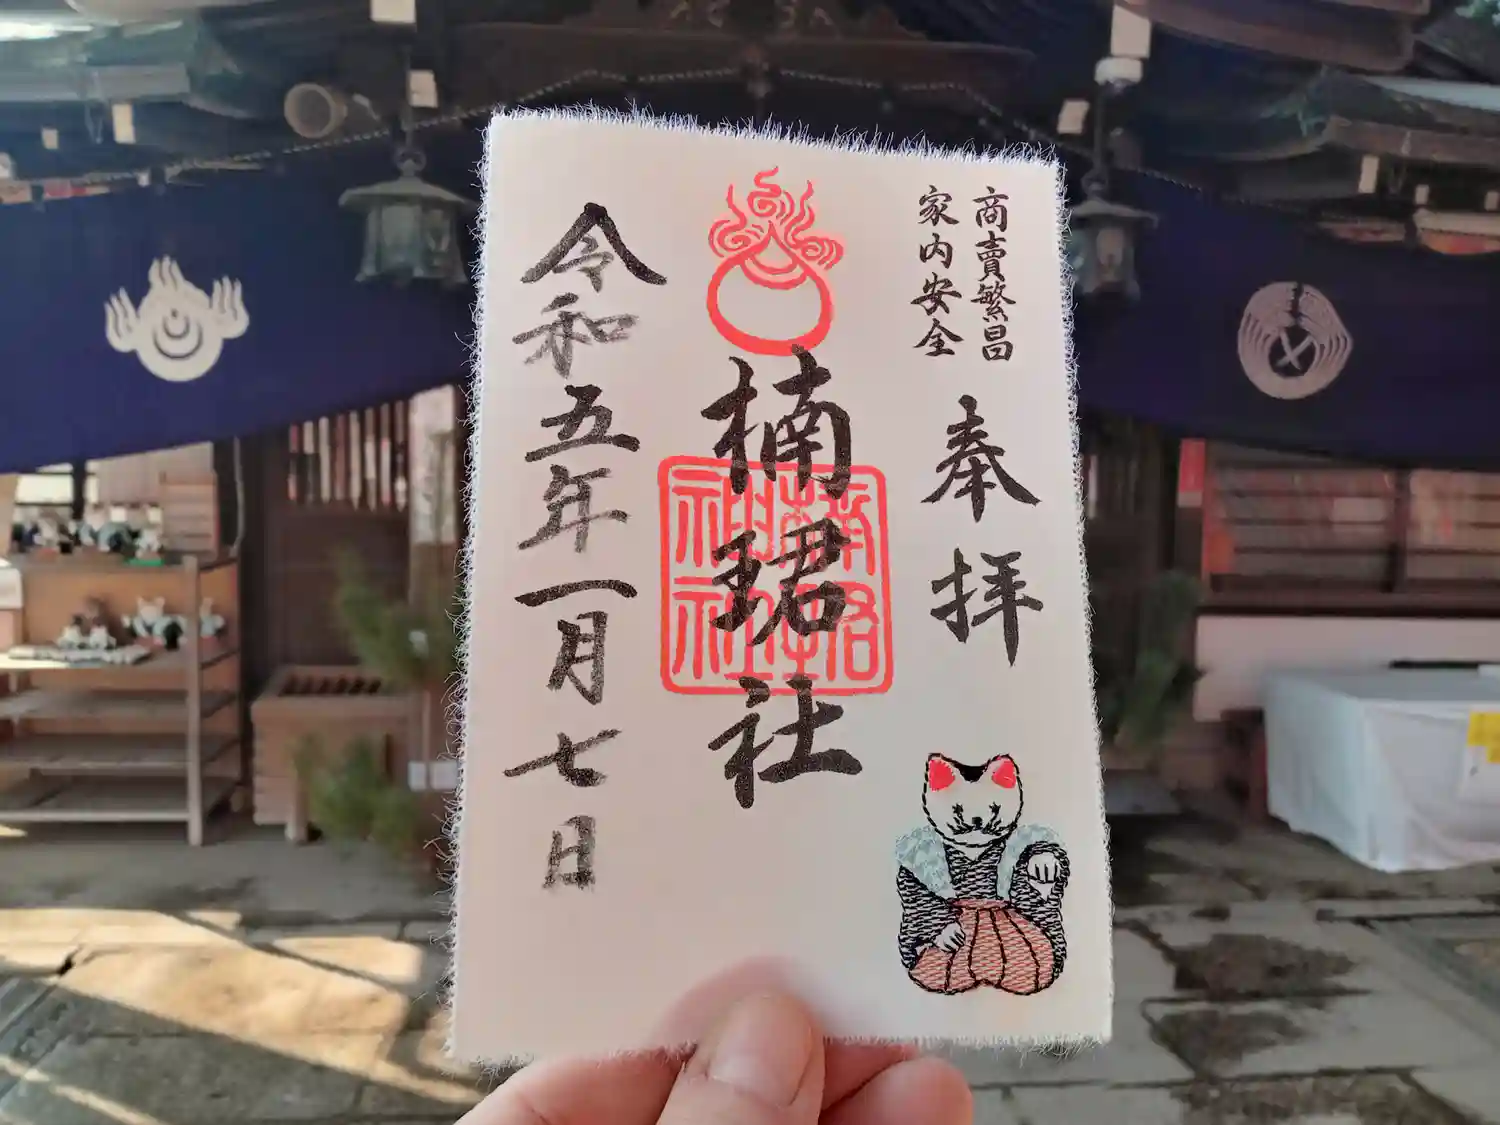 商賣繁昌
家内安全
奉拝
楠珺社
令和五年一月七日